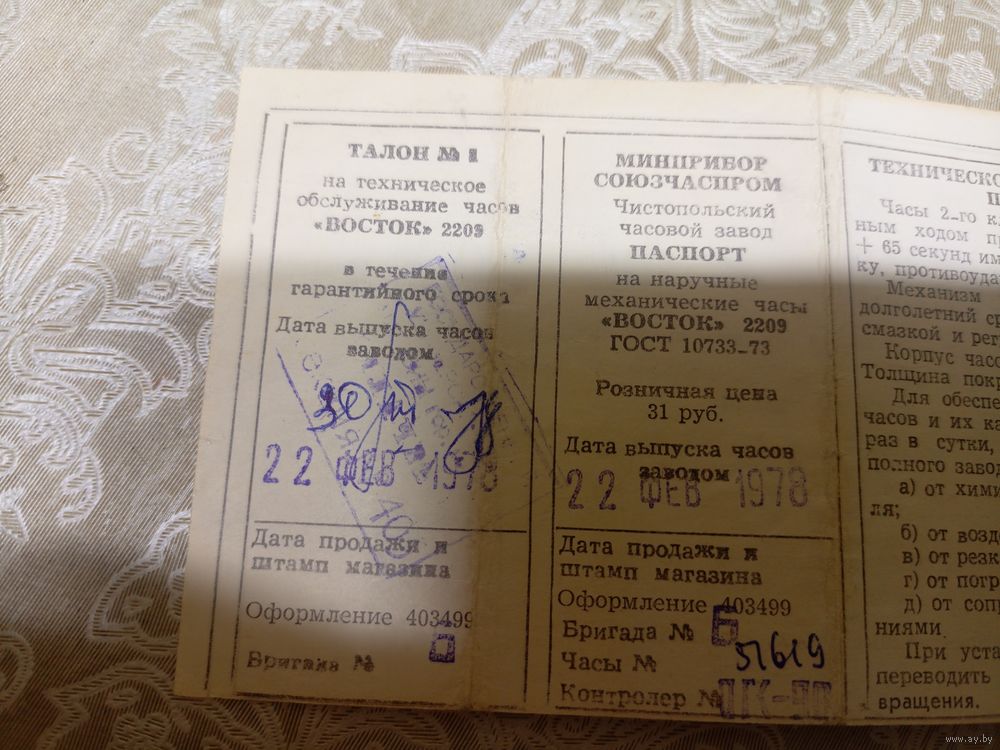 ТАЛОН № 1
на техническое
обслуживание часов
«ВОСТОК» 2209
в течение
гарантийного срока
Дата выпуска часов
заводом
30
22 ФЕВ 1978
Дата продажи и
штамп магазина
Оформление 403499
Бригада №
МИНПРИБОР
СОЮЗЧАСПРОМ
Чистопольский
часовой завод
ПАСПОРТ
на наручные
механические часы
«ВОСТОК» 2209
ГОСТ 10733-73
Розничная цена
31 руб.
Дата выпуска часов
заводом
22 ФЕВ 1978
Дата продажи и
штамп магазина
Оформление 403499
Бригада № Б
Часы № 51619
Контролер №
ТЕХНИЧЕСКО
П
Часы 2-го к
ным ходом п
+ 65 секунд им
ку, противоуда
Механизм
долголетний с
смазкой и рег
Корпус часо
Толщина пок
Для обеспе
часов и их ка
раз в сутки,
полного заво
а) от хими
ля;
б) от возд
в) от резк
г) от погр
д) от соп
ниями.
При уста
переводить
вращения.
www.ay.by